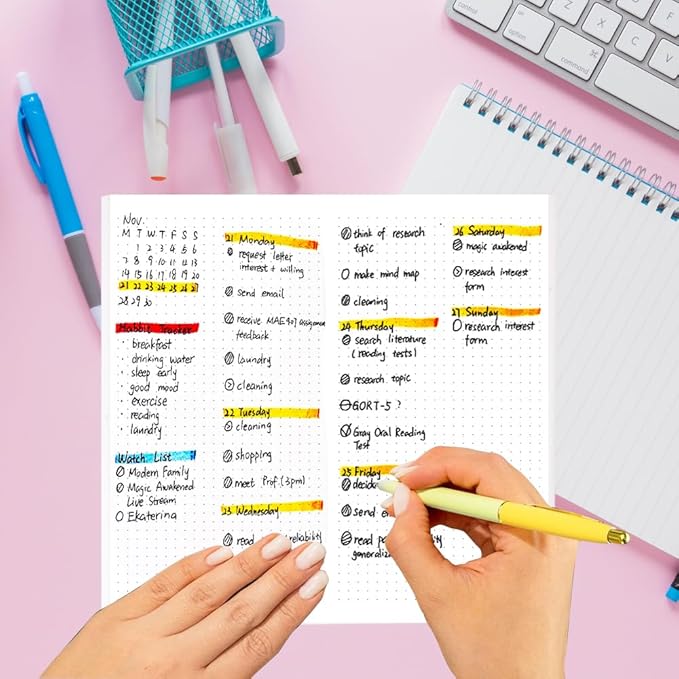 control
option
command
Nov.
M T W T F S S
1 2 3 4 5 6
7 8 9 10 11 12 13
14 15 16 17 18 19 20
21 22 23 24 25 26 27
28 29 30
Habbit Tracker
· breakfast
· drinking water
· sleep early
· good mood
· exercise
· reading
· laundry
Watch List
Modern Family
Magic Awakened
Live Stream
Ekaterina
21 Monday
request letter
interest + willing
send email
receive MAE907 assignment
feedback
laundry
cleaning
22 Tuesday
cleaning
shopping
meet Prof. (3pm)
23 Wednesday
read reliability
think of research
topic
make mind map
cleaning
24 Thursday
search literature
(reading tests)
research topic
GORT-5 ?
Gray Oral Reading
Test
25 Friday
send
read
26 Saturday
magic awakened
research interest
form
27 Sunday
research interest
form